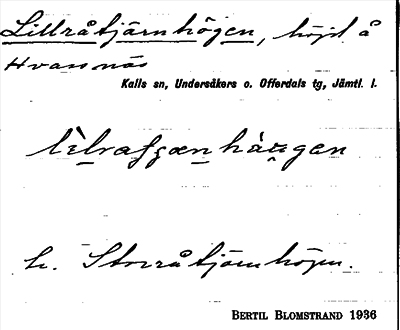 Lillråtjärnhögen, höjd å
Hvassnäs
Kalls sn, Undersåkers o. Offerdals tg, Jämtl. l.
h. Storråtjärnhögen.
BERTIL BLOMSTRAND 1936